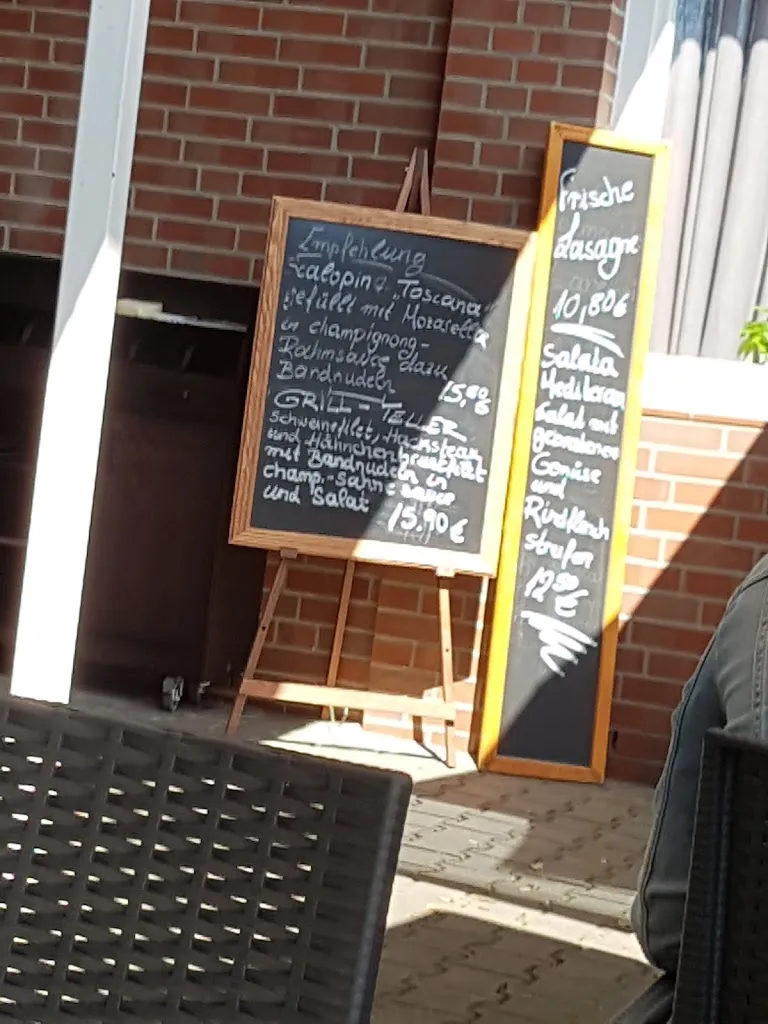 Empfehlung
Scalopina "Toscana"
gefüllt mit Mozarella
in champignong-
Rahmsauce dazu
Bandnudeln 15,90 €
GRILL-TELLER
Schweinefilet, Hacksteak
und Hähnchenbrustfilet
mit Bandnudeln in
champ.-Sahnesauce
und Salat 15,90 €
frische
Lasagne
10,80€
Salata
Mediteran
Salat mit
gebratenem
Gemüse
und
Rindfleisch
streifen
12,90 €